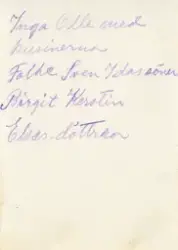 Inga Olle med
kusinerna
Folke Sven Idassöner
Birgit Kerstin
Elsas-döttrar